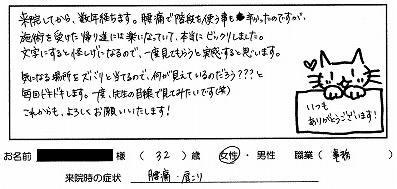 来院してから、数年経ちます。腰痛で階段を使う事も辛かったのですが、
施術を受けた帰り道には楽になっていて、本当にビックリしました。
文字にすると怪しげになるので、一度見てもらうと実感すると思います。
気になる場所をズバリと当てるので、何が見えているのだろう???と
毎回ドキドキします。一度、先生の目線で見てみたいです(笑)
これからも、よろしくお願いいたします!
いつも
ありがとうございます!
お名前 様 (32)歳 女性・男性 職業(事務)
来院時の症状 腰痛・肩こり